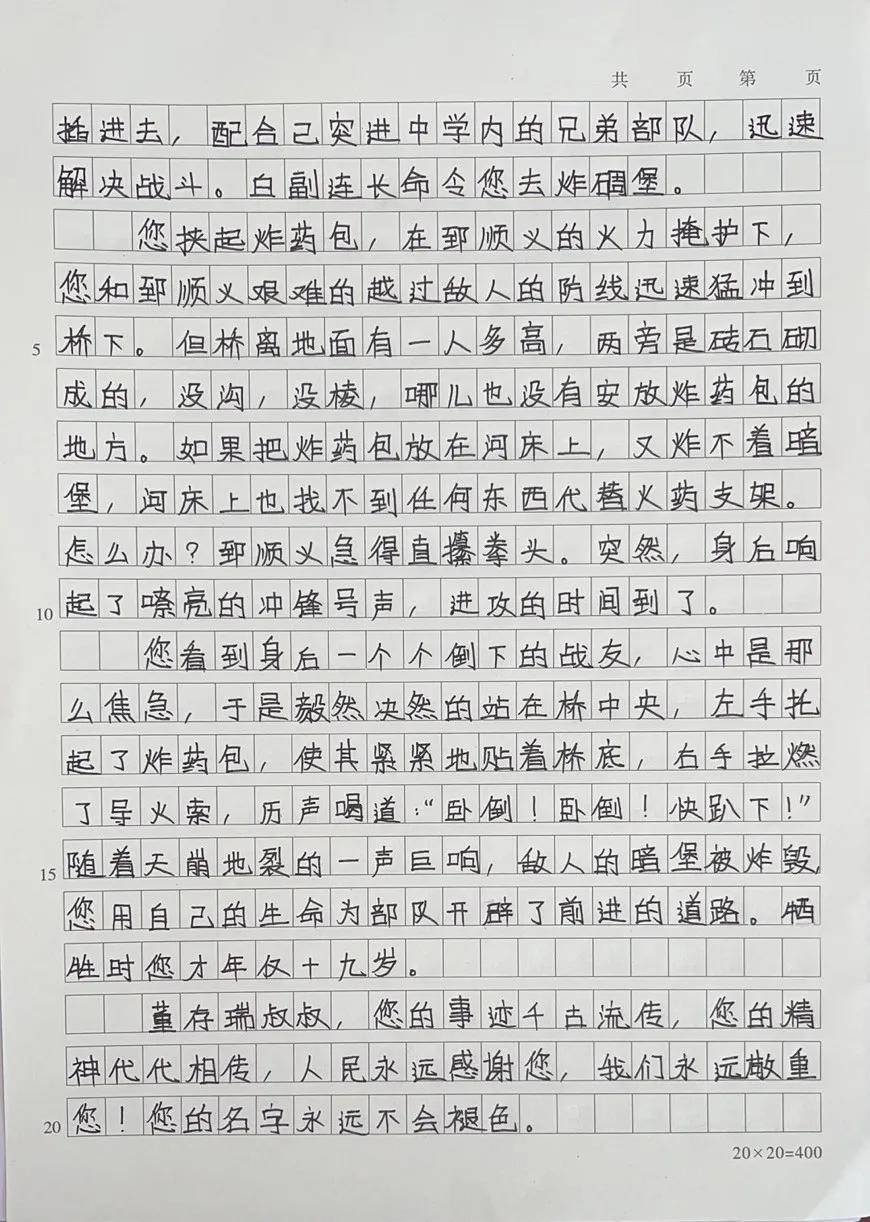 共 页 第 页
插进去，配合已突进中学内的兄弟部队，迅速
解决战斗。白副连长命令您去炸碉堡。
您挟起炸药包，在郅顺义的火力掩护下，
您和郅顺义艰难的越过敌人的防线迅速猛冲到
5 桥下。但桥离地面有一人多高，两旁是砖石砌
成的，没沟，没棱，哪儿也没有安放炸药包的
地方。如果把炸药包放在河床上，又炸不着暗
堡，河床上也找不到任何东西代替火药支架。
怎么办？郅顺义急得直攥拳头。突然，身后响
10 起了嘹亮的冲锋号声，进攻的时间到了。
您看到身后一个个倒下的战友，心中是那
么焦急，于是毅然决然的站在桥中央，左手托
起了炸药包，使其紧紧地贴着桥底，右手拉燃
了导火索，厉声喝道：“卧倒！卧倒！快趴下！”
15 随着天崩地裂的一声巨响，敌人的暗堡被炸毁，
您用自己的生命为部队开辟了前进的道路。牺
牲时您才年仅十九岁。
董存瑞叔叔，您的事迹千古流传，您的精
神代代相传，人民永远感谢您，我们永远敬重
20 您！您的名字永远不会褪色。
20×20=400